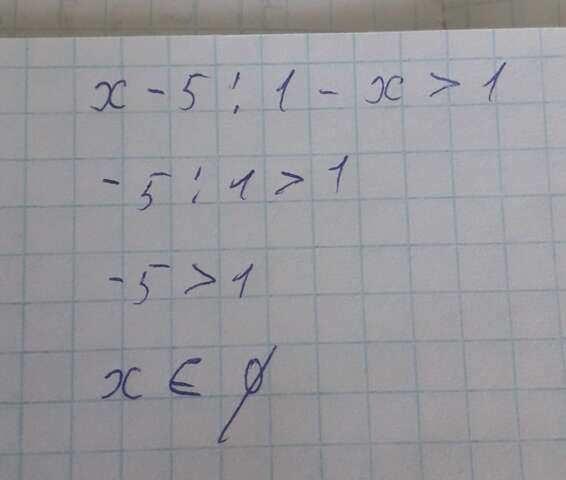 x - 5 : 1 - x > 1
-5 : 1 > 1
-5 > 1
x ∈ ∅